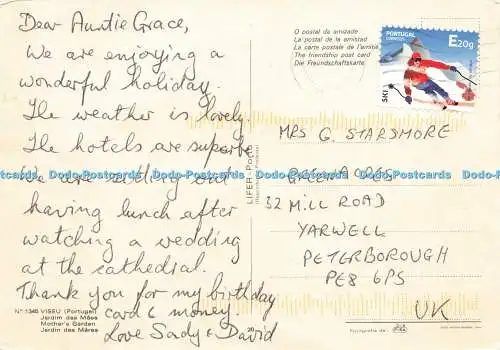 Dear Auntie Grace,
We are enjoying a
wonderful holiday.
The weather is lovely.
The hotels are superbe
We are sitting out
having lunch after
watching a wedding
at the cathedral.
Thank you for my birthday
card & money
Love Sady & David
Nº 1340 VISEU (Portugal)
Jardim das Mães
Mother's Garden
Jardin des Mères
O postal da amizade
La postal de la amistad
La carte postale de l'amitié
The friendship post card
Die Freundschaftskarte
PORTUGAL
E20g
SKI
LIFER - PORTO
MRS G. STARSMORE
32 MILL ROAD
YARWELL
PETERBOROUGH
PE8 6PS
UK
Dodo-Postcards Dodo-Postcards Dodo-Postcards Dodo-Postcards